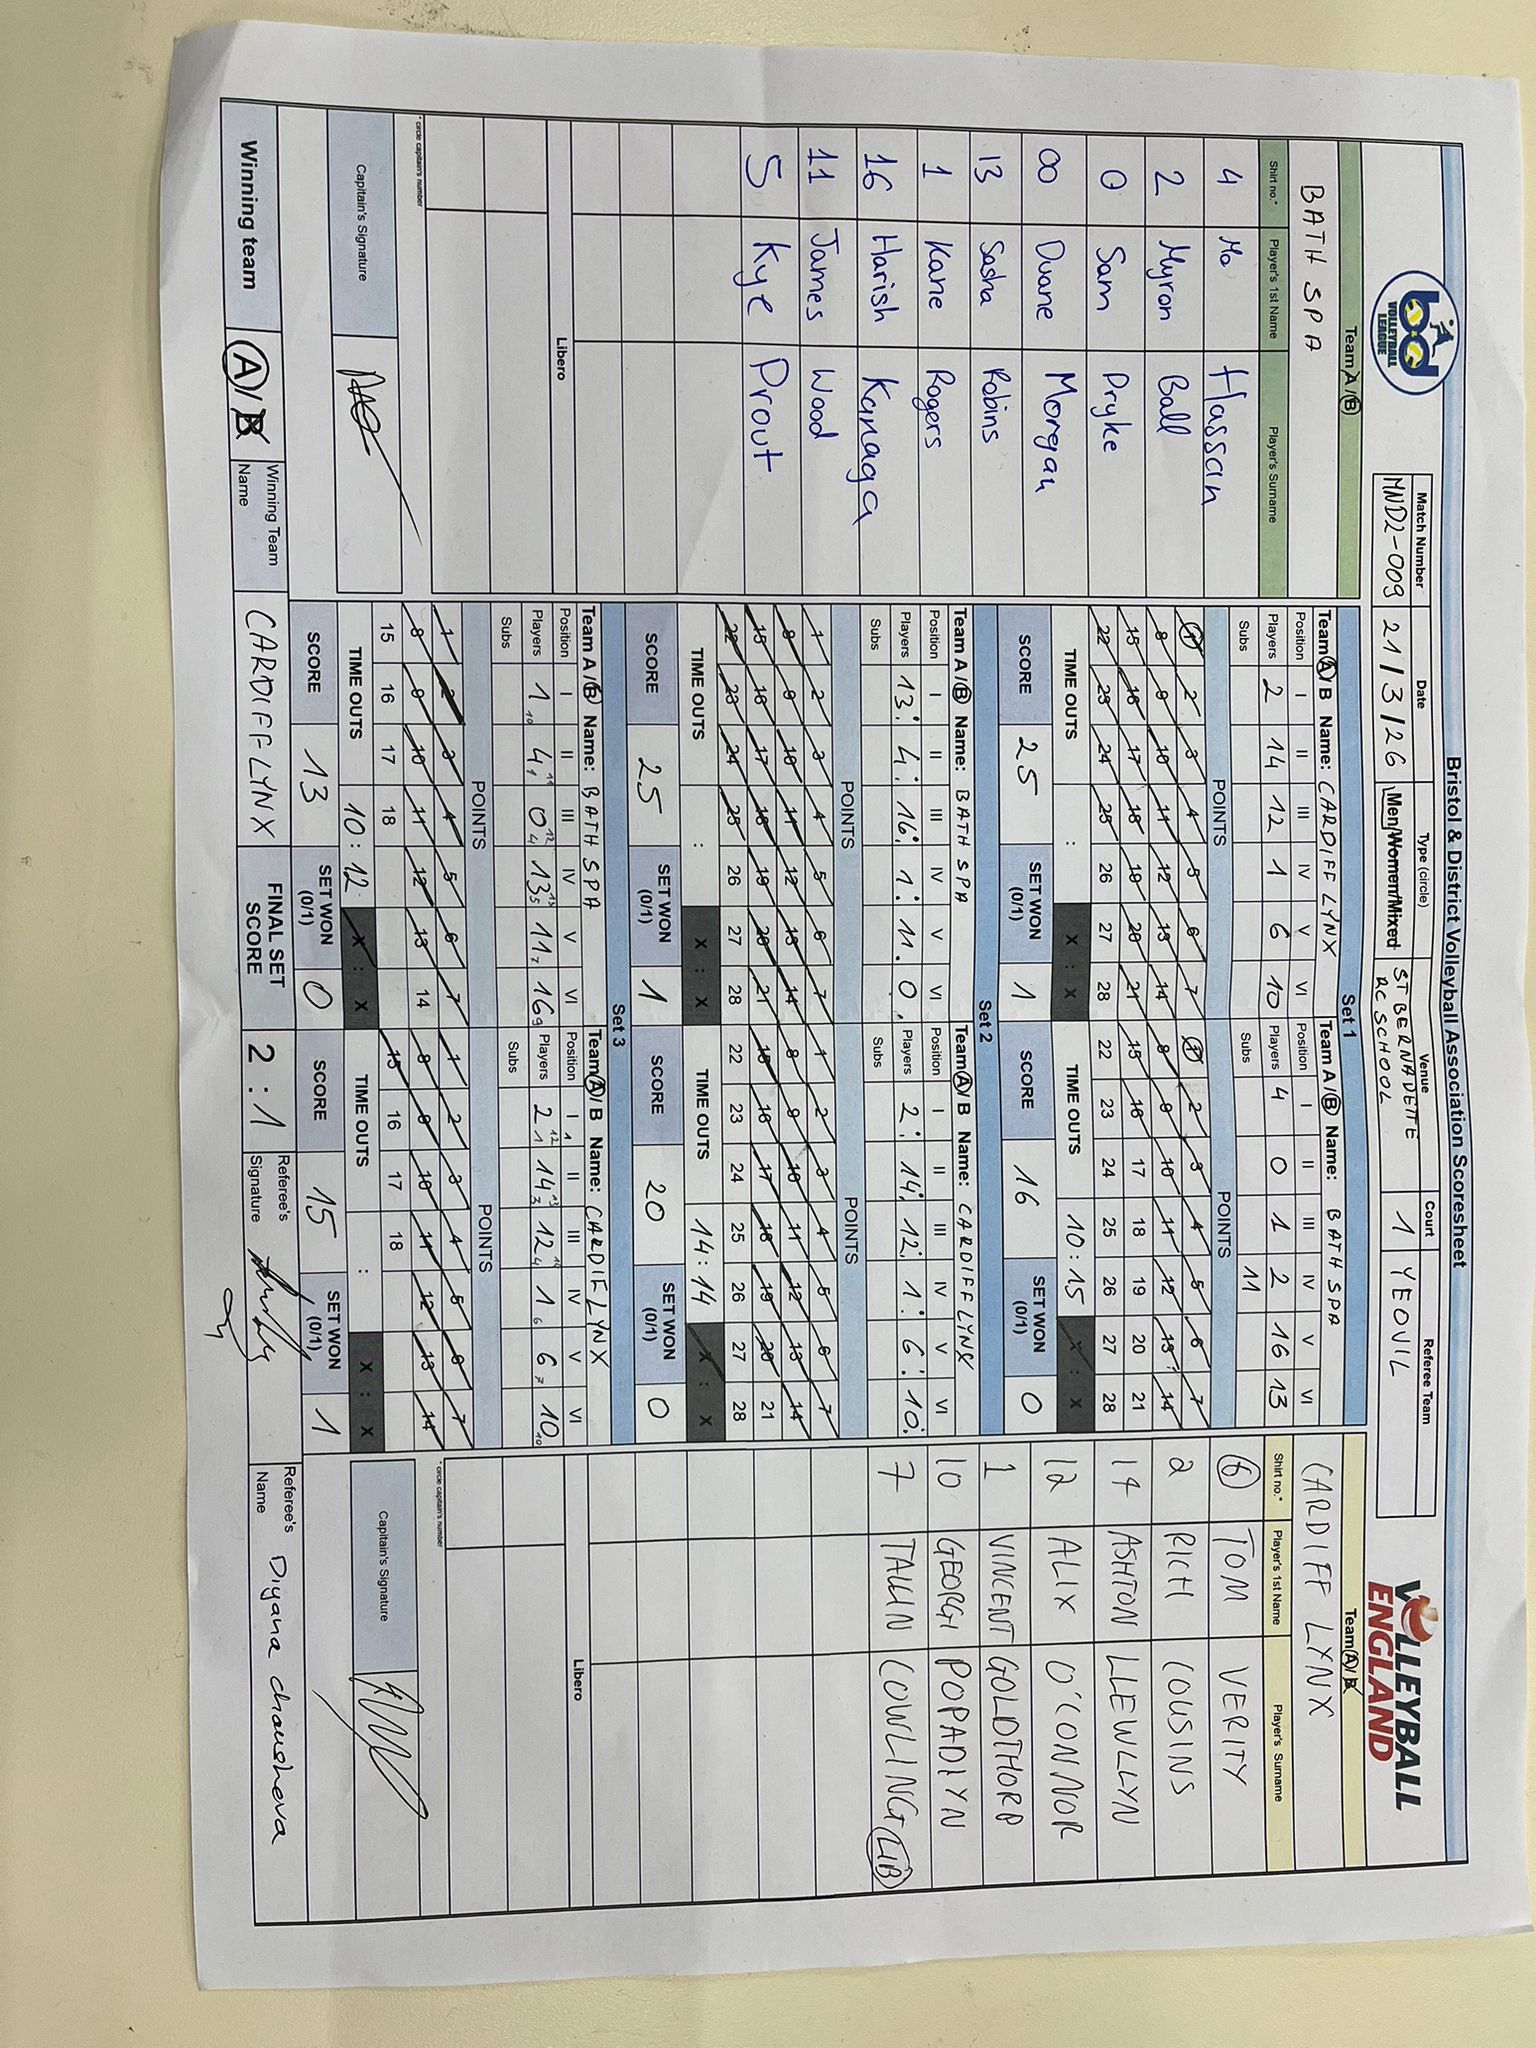 Bristol & District Volleyball Association Scoresheet
b&d VOLLEYBALL LEAGUE
Match Number Date Type (circle) Venue Court Referee Team
MND2-009 21/3/26 Men/Women/Mixed ST BERNADETTE RC SCHOOL 1 YEOVIL
VOLLEYBALL ENGLAND
Team A/B
BATH SPA
Shirt no.* Player's 1st Name Player's Surname
4 Mo Hassan
2 Myron Ball
0 Sam Pryke
00 Duane Morgan
13 Sasha Robins
1 Kane Rogers
16 Harish Kanaga
11 James Wood
5 Kye Prout
Libero
* circle captain's number
Captain's Signature
Set 1
Team A/B Name: CARDIFF LYNX
Position I II III IV V VI
Players 2 14 12 1 6 10
Subs
POINTS
1 2 3 4 5 6 7
8 9 10 11 12 13 14
15 16 17 18 19 20 21
22 23 24 25 26 27 28
TIME OUTS : X : X
SCORE 25 SET WON (0/1) 1
Team A/B Name: BATH SPA
Position I II III IV V VI
Players 4 0 1 2 16 13
Subs 11
POINTS
1 2 3 4 5 6 7
8 9 10 11 12 13 14
15 16 17 18 19 20 21
22 23 24 25 26 27 28
TIME OUTS 10:15 X : X
SCORE 16 SET WON (0/1) 0
Set 2
Team A/B Name: BATH SPA
Position I II III IV V VI
Players 13 4 16 1 11 0
Subs
POINTS
1 2 3 4 5 6 7
8 9 10 11 12 13 14
15 16 17 18 19 20 21
22 23 24 25 26 27 28
TIME OUTS : X : X
SCORE 25 SET WON (0/1) 1
Team A/B Name: CARDIFF LYNX
Position I II III IV V VI
Players 2 14 12 1 6 10
Subs
POINTS
1 2 3 4 5 6 7
8 9 10 11 12 13 14
15 16 17 18 19 20 21
22 23 24 25 26 27 28
TIME OUTS 14:14 X : X
SCORE 20 SET WON (0/1) 0
Set 3
Team A/B Name: BATH SPA
Position I II III IV V VI
Players 1 4 0 13 11 16
Subs
POINTS
1 2 3 4 5 6 7
8 9 10 11 12 13 14
15 16 17 18
TIME OUTS 10:12 X : X
SCORE 13 SET WON (0/1) 0
Team A/B Name: CARDIF LYNX
Position I II III IV V VI
Players 2 14 12 1 6 10
Subs
POINTS
1 2 3 4 5 6 7
8 9 10 11 12 13 14
15 16 17 18
TIME OUTS : X : X
SCORE 15 SET WON (0/1) 1
Team A/B
CARDIFF LYNX
Shirt no.* Player's 1st Name Player's Surname
6 TOM VERITY
2 RICH COUSINS
14 ASHTON LLEWLLYN
12 ALIX O'CONNOR
1 VINCENT GOLDTHORP
10 GEORGI POPADIYN
7 COWLING LIB
Libero
* circle captain's number
Captain's Signature
Winning team A/B Winning Team Name CARDIFF LYNX FINAL SET SCORE 2:1 Referee's Signature Referee's Name Diyana